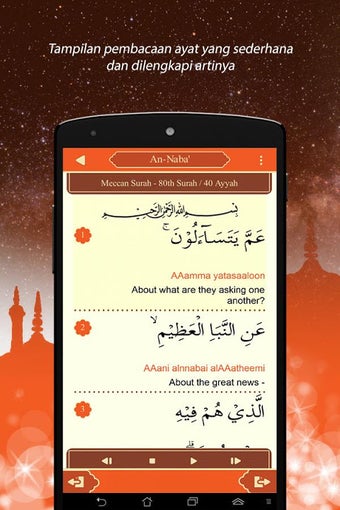 Tampilan pembacaan ayat yang sederhana
dan dilengkapi artinya
An-Naba'
Meccan Surah - 80th Surah / 40 Ayyah
بِسْمِ اللَّهِ الرَّحْمَٰنِ الرَّحِيمِ
1
عَمَّ يَتَسَآءَلُونَ ۚ
AAamma yatasaaloon
About what are they asking one
another?
2
عَنِ النَّبَاِ الْعَظِيْمِ ۙ
AAani alnnabai alAAatheemi
About the great news -
3
الَّذِيْ هُمْ فِيْهِ